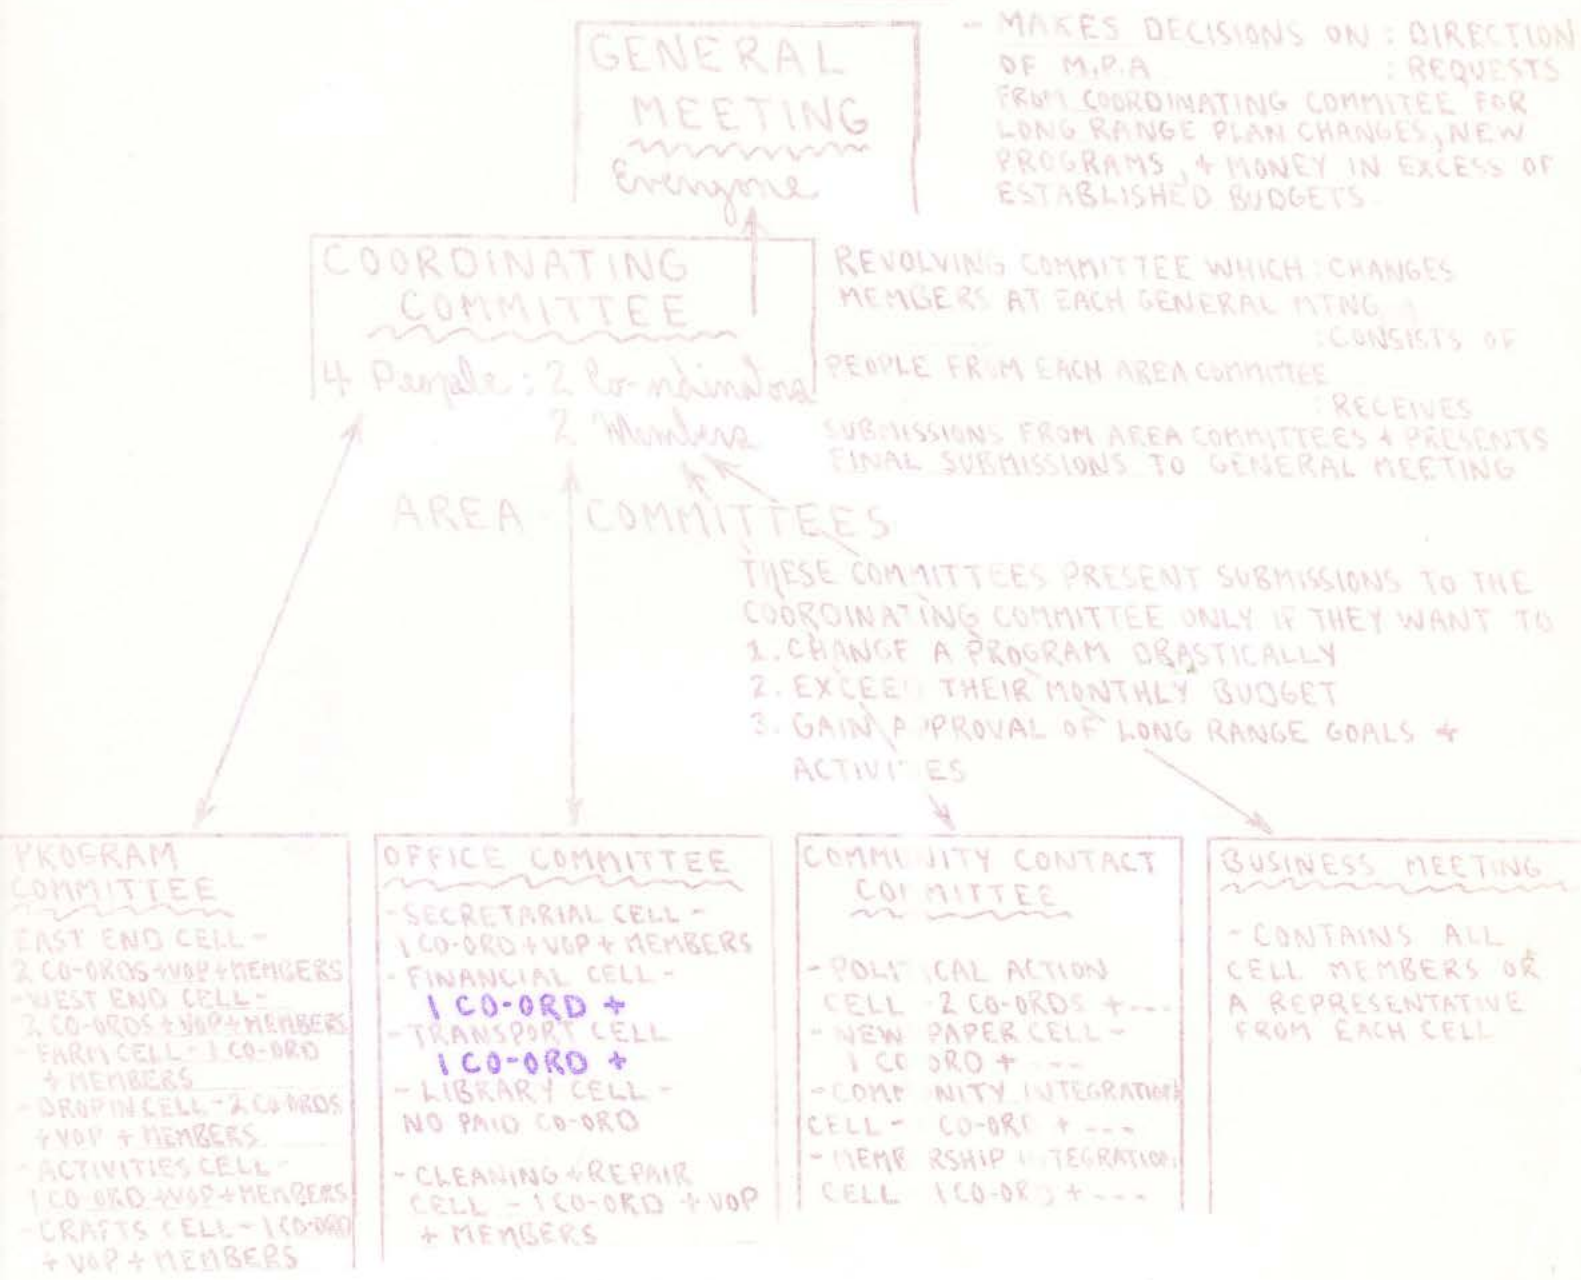 GENERAL
MEETING
Everyone
- MAKES DECISIONS ON : DIRECTION
OF M.P.A : REQUESTS
FROM COORDINATING COMMITEE FOR
LONG RANGE PLAN CHANGES, NEW
PROGRAMS, + MONEY IN EXCESS OF
ESTABLISHED BUDGETS
COORDINATING
COMMITTEE
4 People : 2 Co-ordinators
2 Members
REVOLVING COMMITTEE WHICH : CHANGES
MEMBERS AT EACH GENERAL MTNG
: CONSISTS OF
PEOPLE FROM EACH AREA COMMITTEE
: RECEIVES
SUBMISSIONS FROM AREA COMMITTEES + PRESENTS
FINAL SUBMISSIONS TO GENERAL MEETING
AREA COMMITTEES
THESE COMMITTEES PRESENT SUBMISSIONS TO THE
COORDINATING COMMITTEE ONLY IF THEY WANT TO
1. CHANGE A PROGRAM DRASTICALLY
2. EXCEED THEIR MONTHLY BUDGET
3. GAIN APPROVAL OF LONG RANGE GOALS +
ACTIVITIES
PROGRAM
COMMITTEE
EAST END CELL -
2 CO-ORDS + VOP + MEMBERS
- WEST END CELL -
2 CO-ORDS + VOP + MEMBERS
- FARM CELL - 1 CO-ORD
+ MEMBERS
- DROP IN CELL - 2 CO-ORDS
+ VOP + MEMBERS
- ACTIVITIES CELL -
1 CO-ORD + VOP + MEMBERS
- CRAFTS CELL - 1 CO-ORD
+ VOP + MEMBERS
OFFICE COMMITTEE
- SECRETARIAL CELL -
1 CO-ORD + VOP + MEMBERS
- FINANCIAL CELL -
1 CO-ORD +
- TRANSPORT CELL
1 CO-ORD +
- LIBRARY CELL -
NO PAID CO-ORD
- CLEANING + REPAIR
CELL - 1 CO-ORD + VOP
+ MEMBERS
COMMUNITY CONTACT
COMMITTEE
- POLITICAL ACTION
CELL 2 CO-ORDS + ---
- NEW PAPER CELL -
1 CO ORD + ---
- COMMUNITY INTEGRATION
CELL - CO-ORD + ---
- MEMBERSHIP INTEGRATION
CELL 1 CO-ORD + ---
BUSINESS MEETING
- CONTAINS ALL
CELL MEMBERS OR
A REPRESENTATIVE
FROM EACH CELL